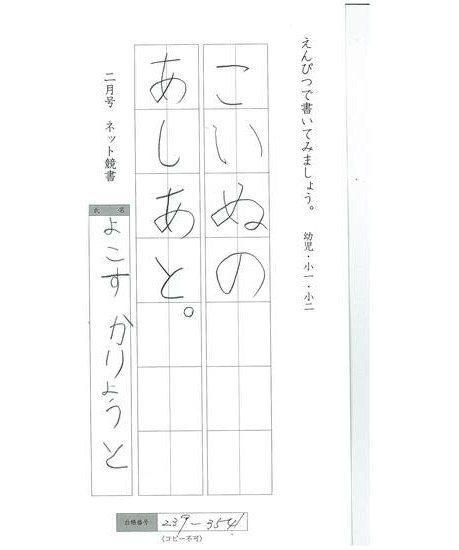 えんぴつで書いてみましょう。 幼児・小一・小二
こいぬの
あしあと。
二月号 ネット競書
氏名
よこすかりょうと
台帳番号 239-354
(コピー不可)